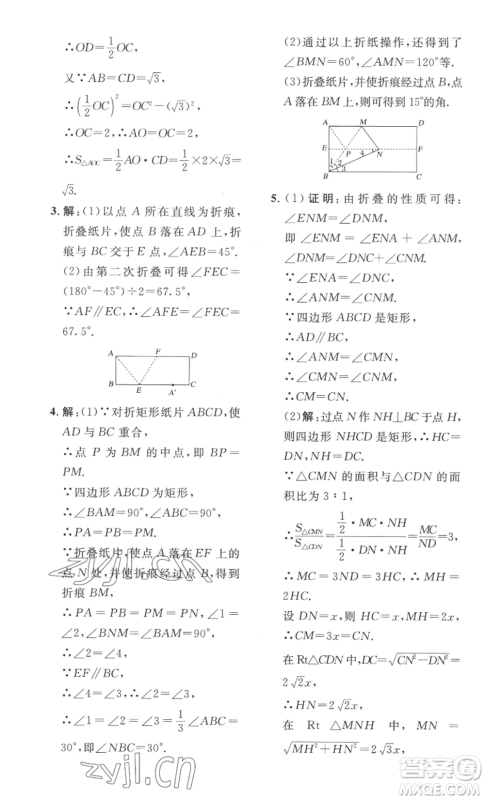 ∴OD=1/2 OC,
又∵AB=CD=√3,
∴(1/2 OC)²=OC²-(√3)²,
∴OC=2,∴OA=2,
∴S△AOC=1/2 AO·CD=1/2×2×√3=
√3.
3. 解:(1)以点 A 所在直线为折痕,
折叠纸片,使点 B 落在 AD 上,折
痕与 BC 交于 E 点,∠AEB=45°.
(2)由第二次折叠可得∠FEC=
(180°-45°)÷2=67.5°,
∵AF∥EC,∴∠AFE=∠FEC=
67.5°.
A F D
B E A' C
4. 解:(1)∵对折矩形纸片 ABCD,使
AD 与 BC 重合,
∴点 P 为 BM 的中点,即 BP=
PM.
∵四边形 ABCD 为矩形,
∴∠BAM=90°,∠ABC=90°,
∴PA=PB=PM.
∵折叠纸片,使点 A 落在 EF 上的
点 N 处,并使折痕经过点 B,得到
折痕 BM,
∴PA=PB=PM=PN,∠1=
∠2,∠BNM=∠BAM=90°,
∴∠2=∠4.
∵EF∥BC,
∴∠4=∠3,∴∠2=∠3,
∴∠1=∠2=∠3=1/3∠ABC=
30°,即∠NBC=30°.
(2)通过以上折纸操作,还得到了
∠BMN=60°,∠AMN=120°等.
(3)折叠纸片,并使折痕经过点 B,
点 A 落在 BM 上,则可得到 15°的角.
A M D
E P 4 N F
1 2
3
B C
5. (1)证明:由折叠的性质可得:
∠ENM=∠DNM,
即 ∠ENM=∠ENA+∠ANM,
∠DNM=∠DNC+∠CNM.
∵∠ENA=∠DNC,
∴∠ANM=∠CNM.
∵四边形 ABCD 是矩形,
∴AD∥BC,
∴∠CMN=∠ANM,
∴∠CMN=∠CNM,
∴CM=CN.
(2)解:过点 N 作 NH⊥BC 于点 H,
则四边形 NHCD 是矩形.
∵△CMN 的面积与△CDN 的面
积比为 3∶1,
∴S△CMN/S△CDN=(1/2·MC·NH)/(1/2·DN·NH)=MC/ND=3,
∴ MC = 3ND = 3HC, ∴ MH =
2HC,
设 DN=x,则 HC=x,MH=2x,
∴CM=3x=CN.
在 Rt△CDN 中,DC=√(CN²-DN²)=
2√2x,
∴HN=2√2x,
在 Rt △MNH 中,MN =
√(MH²+HN²)=2√3x,
zyjl.cn
zyjl.cn
答案圈
MXQE.COM